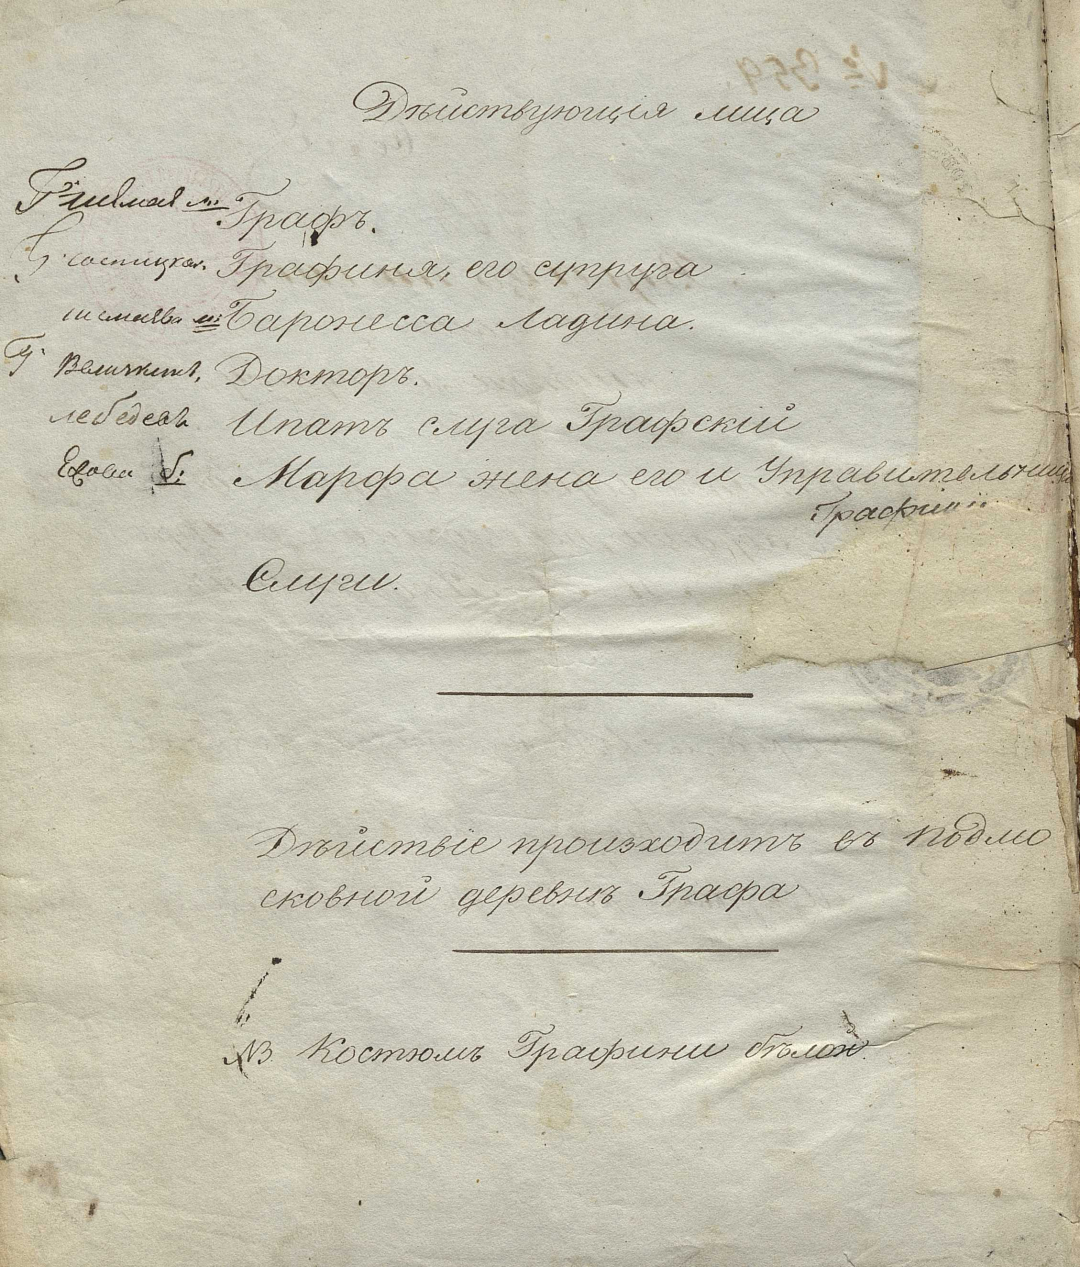 Дѣйствующія лица
Графъ.
Графиня, его супруга
Баронесса Ладина.
Г Величкинъ, Докторъ.
Лебедевъ Ипатъ слуга Графскій
Ежова б. Марфа жена его и Управительница
Графини
Слуги.
Дѣйствіе произходитъ въ подмо
сковной деревнѣ Графа
NB Костюмъ Графини бѣлой.